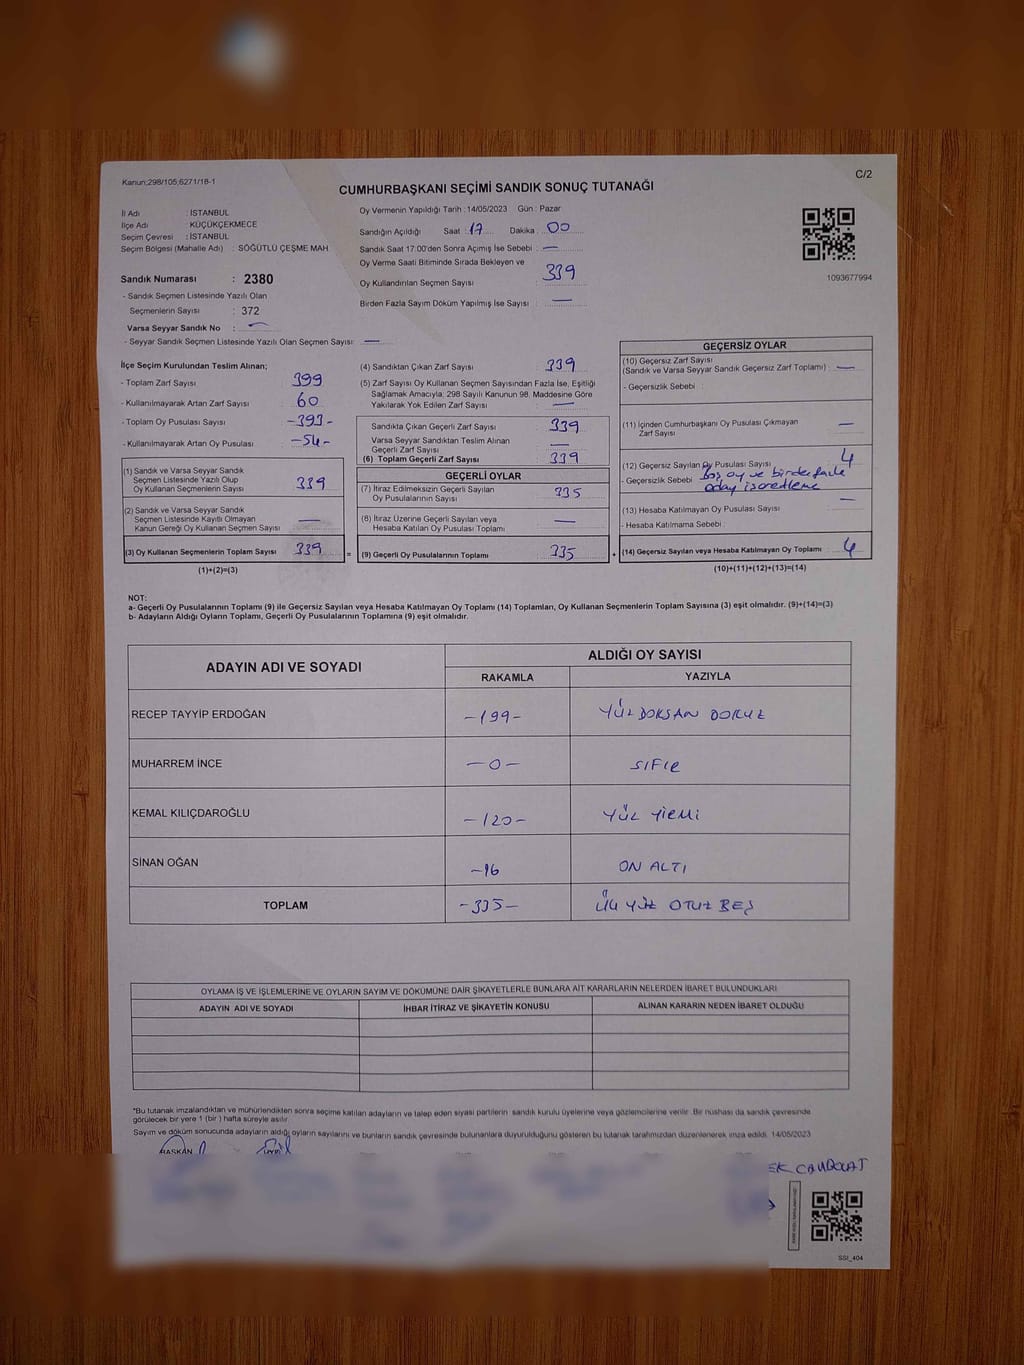 Kanun;298/105;6271/18-1
C/2
CUMHURBAŞKANI SEÇİMİ SANDIK SONUÇ TUTANAĞI
İl Adı : İSTANBUL
İlçe Adı : KÜÇÜKÇEKMECE
Seçim Çevresi : İSTANBUL
Seçim Bölgesi (Mahalle Adı) : SÖĞÜTLÜ ÇEŞME MAH
Sandık Numarası : 2380
- Sandık Seçmen Listesinde Yazılı Olan
Seçmenlerin Sayısı : 372
Varsa Seyyar Sandık No : —
- Seyyar Sandık Seçmen Listesinde Yazılı Olan Seçmen Sayısı: —
Oy Vermenin Yapıldığı Tarih : 14/05/2023 Gün : Pazar
Sandığın Açıldığı Saat : 17 Dakika : 00
Sandık Saat 17:00'den Sonra Açımış İse Sebebi : —
Oy Verme Saati Bitiminde Sırada Bekleyen ve
Oy Kullandırılan Seçmen Sayısı : 339
Birden Fazla Sayım Döküm Yapılmış İse Sayısı : —
1093677994
İlçe Seçim Kurulundan Teslim Alınan;
- Toplam Zarf Sayısı 399
- Kullanılmayarak Artan Zarf Sayısı 60
- Toplam Oy Pusulası Sayısı -393-
- Kullanılmayarak Artan Oy Pusulası -54-
(1) Sandık ve Varsa Seyyar Sandık
Seçmen Listesinde Yazılı Olup
Oy Kullanan Seçmenlerin Sayısı 339
(2) Sandık ve Varsa Seyyar Sandık
Seçmen Listesinde Kayıtlı Olmayan
Kanun Gereği Oy Kullanan Seçmen Sayısı —
(3) Oy Kullanan Seçmenlerin Toplam Sayısı 339
(1)+(2)=(3)
(4) Sandıktan Çıkan Zarf Sayısı 339
(5) Zarf Sayısı Oy Kullanan Seçmen Sayısından Fazla İse, Eşitliği
Sağlamak Amacıyla; 298 Sayılı Kanunun 98. Maddesine Göre
Yakılarak Yok Edilen Zarf Sayısı —
Sandıkta Çıkan Geçerli Zarf Sayısı 339
Varsa Seyyar Sandıktan Teslim Alınan
Geçerli Zarf Sayısı —
(6) Toplam Geçerli Zarf Sayısı 339
GEÇERLİ OYLAR
(7) İtiraz Edilmeksizin Geçerli Sayılan
Oy Pusulalarının Sayısı 335
(8) İtiraz Üzerine Geçerli Sayılan veya
Hesaba Katılan Oy Pusulası Toplamı —
= (9) Geçerli Oy Pusulalarının Toplamı 335 +
GEÇERSİZ OYLAR
(10) Geçersiz Zarf Sayısı
(Sandık ve Varsa Seyyar Sandık Geçersiz Zarf Toplamı) : —
- Geçersizlik Sebebi :
(11) İçinden Cumhurbaşkanı Oy Pusulası Çıkmayan
Zarf Sayısı —
(12) Geçersiz Sayılan Oy Pusulası Sayısı 4
- Geçersizlik Sebebi boş oy ve birden fazla
aday işaretleme
(13) Hesaba Katılmayan Oy Pusulası Sayısı —
- Hesaba Katılmama Sebebi :
(14) Geçersiz Sayılan veya Hesaba Katılmayan Oy Toplamı 4
(10)+(11)+(12)+(13)=(14)
NOT:
a- Geçerli Oy Pusulalarının Toplamı (9) ile Geçersiz Sayılan veya Hesaba Katılmayan Oy Toplamı (14) Toplamları, Oy Kullanan Seçmenlerin Toplam Sayısına (3) eşit olmalıdır. (9)+(14)=(3)
b- Adayların Aldığı Oyların Toplamı, Geçerli Oy Pusulalarının Toplamına (9) eşit olmalıdır.
ADAYIN ADI VE SOYADI
ALDIĞI OY SAYISI
RAKAMLA YAZIYLA
RECEP TAYYİP ERDOĞAN -199- YÜZ DOKSAN DOKUZ
MUHARREM İNCE -0- SIFIR
KEMAL KILIÇDAROĞLU -120- YÜZ YİRMİ
SİNAN OĞAN -16 ON ALTI
TOPLAM -335- ÜÇ YÜZ OTUZ BEŞ
OYLAMA İŞ VE İŞLEMLERİNE VE OYLARIN SAYIM VE DÖKÜMÜNE DAİR ŞİKAYETLERLE BUNLARA AİT KARARLARIN NELERDEN İBARET BULUNDUKLARI
ADAYIN ADI VE SOYADI İHBAR İTİRAZ VE ŞİKAYETİN KONUSU ALINAN KARARIN NEDEN İBARET OLDUĞU
*Bu tutanak imzalandıktan ve mühürlendikten sonra seçime katılan adayların ve talep eden siyasi partilerin sandık kurulu üyelerine veya gözlemcilerine verilir. Bir nüshası da sandık çevresinde
görülecek bir yere 1 (bir ) hafta süreyle asılır.
Sayım ve döküm sonucunda adayların aldığı oyların sayılarını ve bunların sandık çevresinde bulunanlara duyurulduğunu gösteren bu tutanak tarafımızdan düzenlenerek imza edildi. 14/05/2023
BAŞKAN
SSI_404